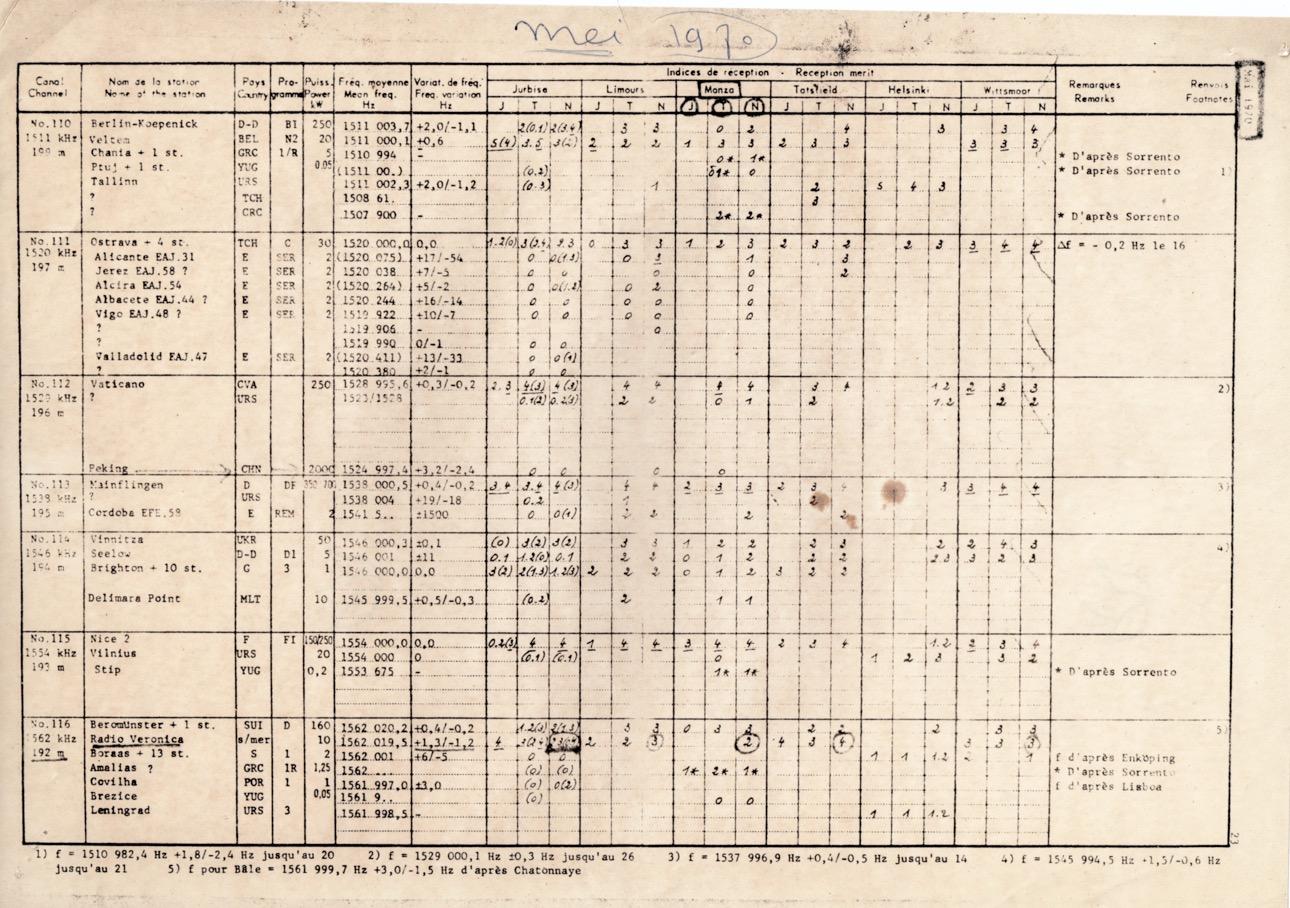 mei 1970
Mai 1970
Indices de réception - Reception merit
Canal Channel | Nom de la station Name of the station | Pays Country | Programme | Puiss. Power kW | Fréq. moyenne Mean freq. Hz | Variat. de fréq. Freq. variation Hz | Jurbise | Limours | Monza | Tatsfield | Helsinki | Wittsmoor | Remarques Remarks | Renvois Footnotes
J T N J T N J T N J T N J T N J T N
No.110 Berlin-Koepenick D-D BI 250 1511 003,7 +2,0/-1,1 2(0.1) 2(3.4) 3 3 0 2 4 3 3 4
1511 kHz Veltem BEL N2 20 1511 000,1 +0,6 5(4) 3.5 3(2) 2 2 2 1 3 3 2 3 3 3 3 3
199 m Chania + 1 st. GRC 1/R 5 1510 994 - 0* 1* * D'après Sorrento
Ptuj + 1 st. YUG 0,05 (1511 00.) (0.2) 01* 0 * D'après Sorrento 1)
Tallinn URS 1511 002,3 +2,0/-1,2 (0.3) 1 2 5 4 3
? TCH 1508 61. 3
? CRC 1507 900 - 2* 2* * D'après Sorrento
No.111 Ostrava + 4 st. TCH C 30 1520 000,0 0,0 1.2(0) 3(2.4) 2.3 0 3 3 1 2 3 2 3 2 2 3 3 4 4 Δf = - 0,2 Hz le 16
1520 kHz Alicante EAJ.31 E SER 2 (1520 075) +17/-54 0 0(1.3) 0 3 1 3
197 m Jerez EAJ.58 ? E SER 2 1520 038 +7/-5 0 0 0 0 2
Alcira EAJ.54 E SER 2 (1520 264) +5/-2 0 0(1.2) 0 2 0
Albacete EAJ.44 ? E SER 2 1520 244 +16/-14 0 0 0 0 0
Vigo EAJ.48 ? E SER 2 1519 922 +10/-7 0 0 0 0 0
? 1519 906 - 0
? 1519 990 0/-1 0 0
Valladolid EAJ.47 E SER 2 (1520 411) +13/-33 0 0(1)
? 1520 380 +2/-1 0 0
No.112 Vaticano CVA 250 1528 995,6 +0,3/-0,2 2.3 4(3) 4(3) 4 4 4 4 3 4 1.2 2 3 3 2)
1529 kHz ? URS 1523/1528 0.1(2) 0.2(3) 2 2 0 1 2 1.2 2 2
196 m
Peking CHN 2000 1524 997,4 +3,2/-2,4 0 0 0 0
No.113 Mainflingen D DF 350 700 1538 000,5 +0,4/-0,2 3.4 3.4 4(3) 4 4 2 3 3 2 3 4 3 3 4 4 3)
1538 kHz ? URS 1538 004 +19/-18 0.2 1 2
195 m Cordoba EFE.58 E REM 2 1541 5.. ±1500 0 0(1) 2 2 2 2
No.114 Vinnitza UKR 50 1546 000,3 ±0,1 (0) 3(2) 3(2) 3 3 1 2 2 2 3 2 2 4 3 4)
1546 kHz Seelow D-D D1 5 1546 001 ±11 0.1 1.2(0) 0.1 2 2 0 1 2 2 2 2.3 3 2 3
194 m Brighton + 10 st. G 3 1 1546 000,0 0,0 3(2) 2(1.3) 1.2(3) 2 2 2 0 1 2 3 2 2
Delimara Point MLT 10 1545 999,5 +0,5/-0,3 (0.2) 2 1 1
No.115 Nice 2 F FI 150/250 1554 000,0 0,0 0.2(3) 4 4 1 4 4 3 4 4 2 3 4 1.2 2 3 4
1554 kHz Vilnius URS 20 1554 000 0 (0.1) (0.1) 0 1 2 3 3 2
193 m Stip YUG 0,2 1553 675 - 1* 1* * D'après Sorrento
No.116 Beromünster + 1 st. SUI D 160 1562 020,2 +0,4/-0,2 1.2(3) 2(1.3) 3 3 0 3 3 2 2 2 3 3 5)
1562 kHz Radio Veronica s/mer 10 1562 019,5 +1,3/-1,2 4 2 2 3 2 4 3 4 3 3 3
192 m Boraas + 13 st. S 1 2 1562 001 +6/-5 0 0 1 1 1.2 2 1 f d'après Enköping
Amalias ? GRC 1R 1,25 1562 ... (0) (0) 1* 2* 1* * D'après Sorrento
Covilha POR 1 1 1561 997,0 ±3,0 (0) 0(2) f d'après Lisboa
Brezice YUG 0,05 1561 9.. (0) 0 0
Leningrad URS 3 1561 998,5 - 1 1 1.2
23
1) f = 1510 982,4 Hz +1,8/-2,4 Hz jusqu'au 20 2) f = 1529 000,1 Hz ±0,3 Hz jusqu'au 26 3) f = 1537 996,9 Hz +0,4/-0,5 Hz jusqu'au 14 4) f = 1545 994,5 Hz +1,5/-0,6 Hz
jusqu'au 21 5) f pour Bâle = 1561 999,7 Hz +3,0/-1,5 Hz d'après Chatonnaye